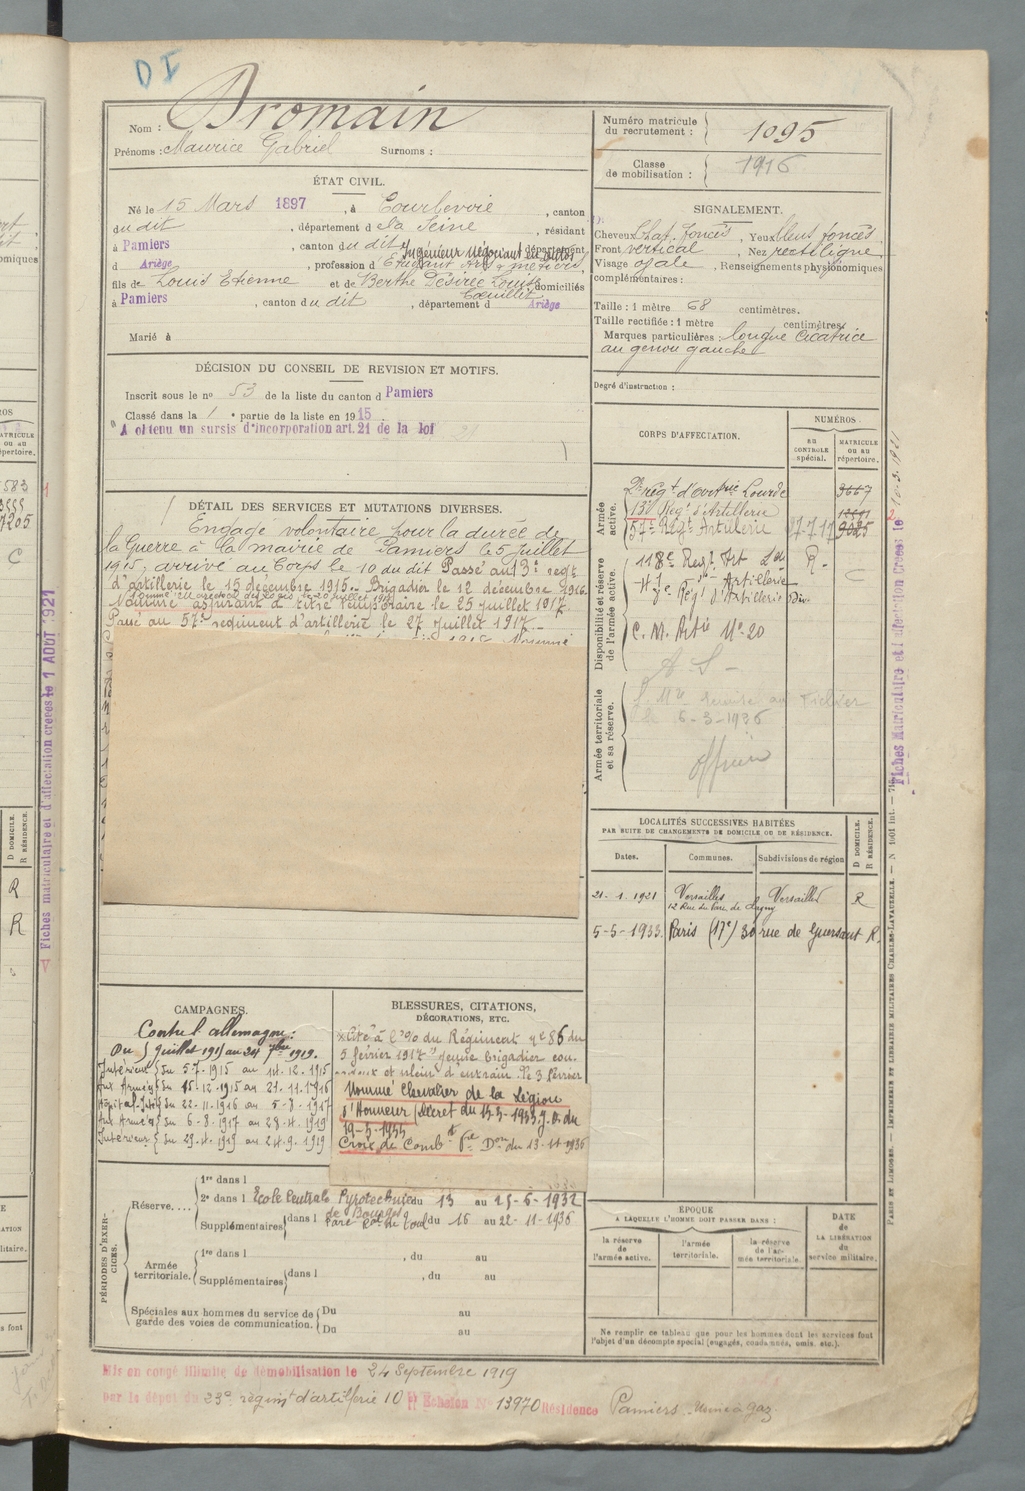 DI
Nom : Dromain
Prénoms : Maurice Gabriel Surnoms :
Numéro matricule du recrutement : 1095
Classe de mobilisation : 1916
ÉTAT CIVIL.
Né le 15 Mars 1897, à Courbevoie, canton
du dit, département de la Seine, résidant
à Pamiers, canton du dit, département
Ingénieur Négociant en autos
d Ariège, profession d'Étudiant Arts & métiers
fils de Louis Etienne et de Berthe Désirée Louise domiciliés
Coeuillet
à Pamiers, canton du dit, département d Ariège
Marié à
SIGNALEMENT.
Cheveux Chat. foncés, Yeux bleus foncés
Front vertical, Nez rectiligne
Visage ovale, Renseignements physionomiques
complémentaires :
Taille : 1 mètre 68 centimètres.
Taille rectifiée : 1 mètre centimètres.
Marques particulières : longue cicatrice
au genou gauche
Degré d'instruction :
DÉCISION DU CONSEIL DE REVISION ET MOTIFS.
Inscrit sous le nº 53 de la liste du canton d Pamiers
Classé dans la 1e partie de la liste en 1915
A obtenu un sursis d'incorporation art. 21 de la loi
CORPS D'AFFECTATION.
NUMÉROS
AU CONTRÔLE spécial.
MATRICULE OU AU répertoire.
Armée active.
2e régt d'artrie Lourde 3667
13e Régt d'Artillerie
57e Régt Artillerie 27-7-17 9085
Disponibilité et réserve de l'armée active.
118e Regt Art Lde R.
C
C. M. Artie Nº 20
A S -
Armée territoriale et sa réserve.
remise au Fichier
le 6-3-1936
officier
DÉTAIL DES SERVICES ET MUTATIONS DIVERSES.
Engagé volontaire pour la durée de
la Guerre à la mairie de Pamiers le 5 juillet
1915, arrivé au Corps le 10 du dit Passé au 13e regt
d'artillerie le 15 décembre 1915. Brigadier le 12 décembre 1916.
Nommé aspirant à titre temporaire le 25 juillet 1917.
Passé au 57e regiment d'artillerie le 27 juillet 1917.
LOCALITÉS SUCCESSIVES HABITÉES
PAR SUITE DE CHANGEMENTS DE DOMICILE OU DE RÉSIDENCE.
Dates. Communes. Subdivisions de région
D DOMICILE.
R RÉSIDENCE.
21-1-1921 Versailles Versailles R
12 Rue du Parc de Clagny
5-5-1933. Paris (17e) 30 rue de Guersant R.
CAMPAGNES.
Contre l'allemagne :
Du 5 Juillet 1915 au 24 7bre 1919.
Intérieur du 5-7-1915 au 14-12-1915
Aux Armées du 15-12-1915 au 21-11-1916
Hôpital-Intr du 22-11-1916 au 5-8-1917
Aux Armées du 6-8-1917 au 28-4-1919
Intérieur du 29-4-1919 au 24-9-1919
BLESSURES, CITATIONS, DÉCORATIONS, ETC.
Cité à l'o/o du Régiment nº 86 du
5 février 1917 "Jeune brigadier cou-
et plein d'entrain. le 3 février
Nommé Chevalier de la Légion
d'Honneur (Décret du 15-3-1935 J.O. du
19-3-1935
Croix de Combt du 13-11-1936
PÉRIODES D'EXERCICES.
Réserve....
1re dans l
2e dans l Ecole Centrale Pyrotechnie du 13 au 25-6-1932
de Bourges
Supplémentaires dans l Parc du 16 au 22-11-1936
Armée territoriale.
1re dans l , du au
Supplémentaires dans l , du au
Spéciales aux hommes du service de garde des voies de communication.
Du au
Du au
ÉPOQUE
A LAQUELLE L'HOMME DOIT PASSER DANS :
la réserve de l'armée active.
l'armée territoriale.
la réserve de l'armée territoriale.
DATE de LA LIBÉRATION du service militaire.
Ne remplir ce tableau que pour les hommes dont les services font
l'objet d'un décompte spécial (engagés, condamnés, omis, etc.).
Mis en congé illimité de démobilisation le 24 Septembre 1919
par le dépôt du 23e régimt d'artillerie 10e Echelon Nº 13970 Résidence Pamiers. Usine à gaz
Fiches matriculaire et d'affectation créées le 1 AOUT 1921
Fiches Matriculaire et d'affectation Creees le
PARIS ET LIMOGES. — IMPRIMERIE ET LIBRAIRIE MILITAIRES CHARLES-LAVAUZELLE. — N 1001 int. —